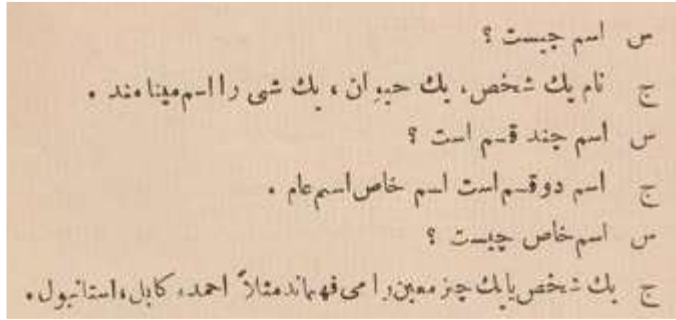 س اسم چیست ؟
ج نام یك شخص، یك حیوان ، یك شی را اسم مینامند .
س اسم چند قسم است ؟
ج اسم دو قسم است اسم خاص اسم عام .
س اسم خاص چیست ؟
ج یك شخص یا یك چیز معین را می فهماند مثلاً احمد، كابل، استانبول .